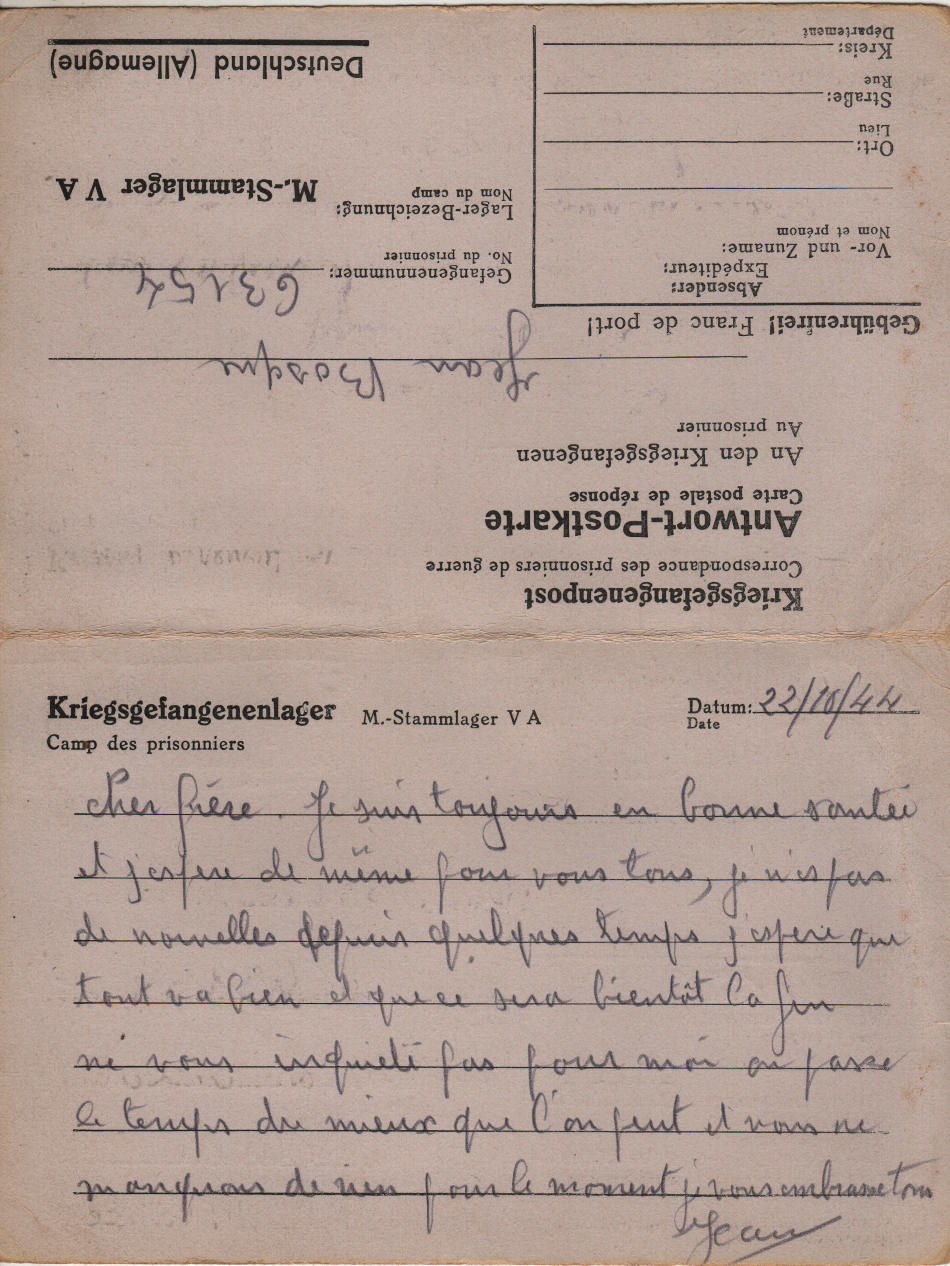 Kriegsgefangenenpost
Correspondance des prisonniers de guerre
Antwort-Postkarte
Carte postale de réponse
An den Kriegsgefangenen
Au prisonnier
Jean Bosque
Gebührenfrei! Franc de port!
Absender:
Expéditeur:
Vor- und Zuname:
Nom et prénom
Ort:
Lieu
Straße:
Rue
Kreis:
Département
Gefangenennummer: 63154
No. du prisonnier
Lager-Bezeichnung: M.-Stammlager V A
Nom du camp
Deutschland (Allemagne)
Kriegsgefangenenlager M.-Stammlager V A Datum: 22/10/44
Camp des prisonniers Date
cher frère. Je suis toujours en bonne santée
et j'espere de même pour vous tous, je n'es pas
de nouvelles depuis quelques temps j'espere que
tout va bien et que ce sera bientôt la fin
ne vous inquieté pas pour moi on passe
le temps du mieux que l'on peut et vous ne
manquons de rien pour le moment je vous embrasse tous
Jean